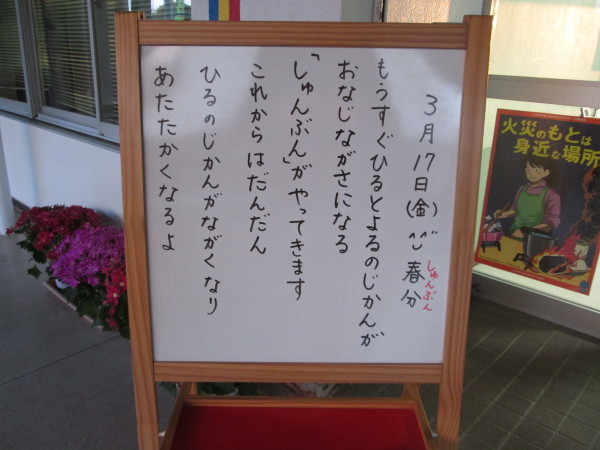 3月17日(金) 春分
しゅんぶん
もうすぐひるとよるのじかんが
おなじながさになる
「しゅんぶん」がやってきます
これからはだんだん
ひるのじかんがながくなり
あたたかくなるよ
火災のもとは
身近な場所